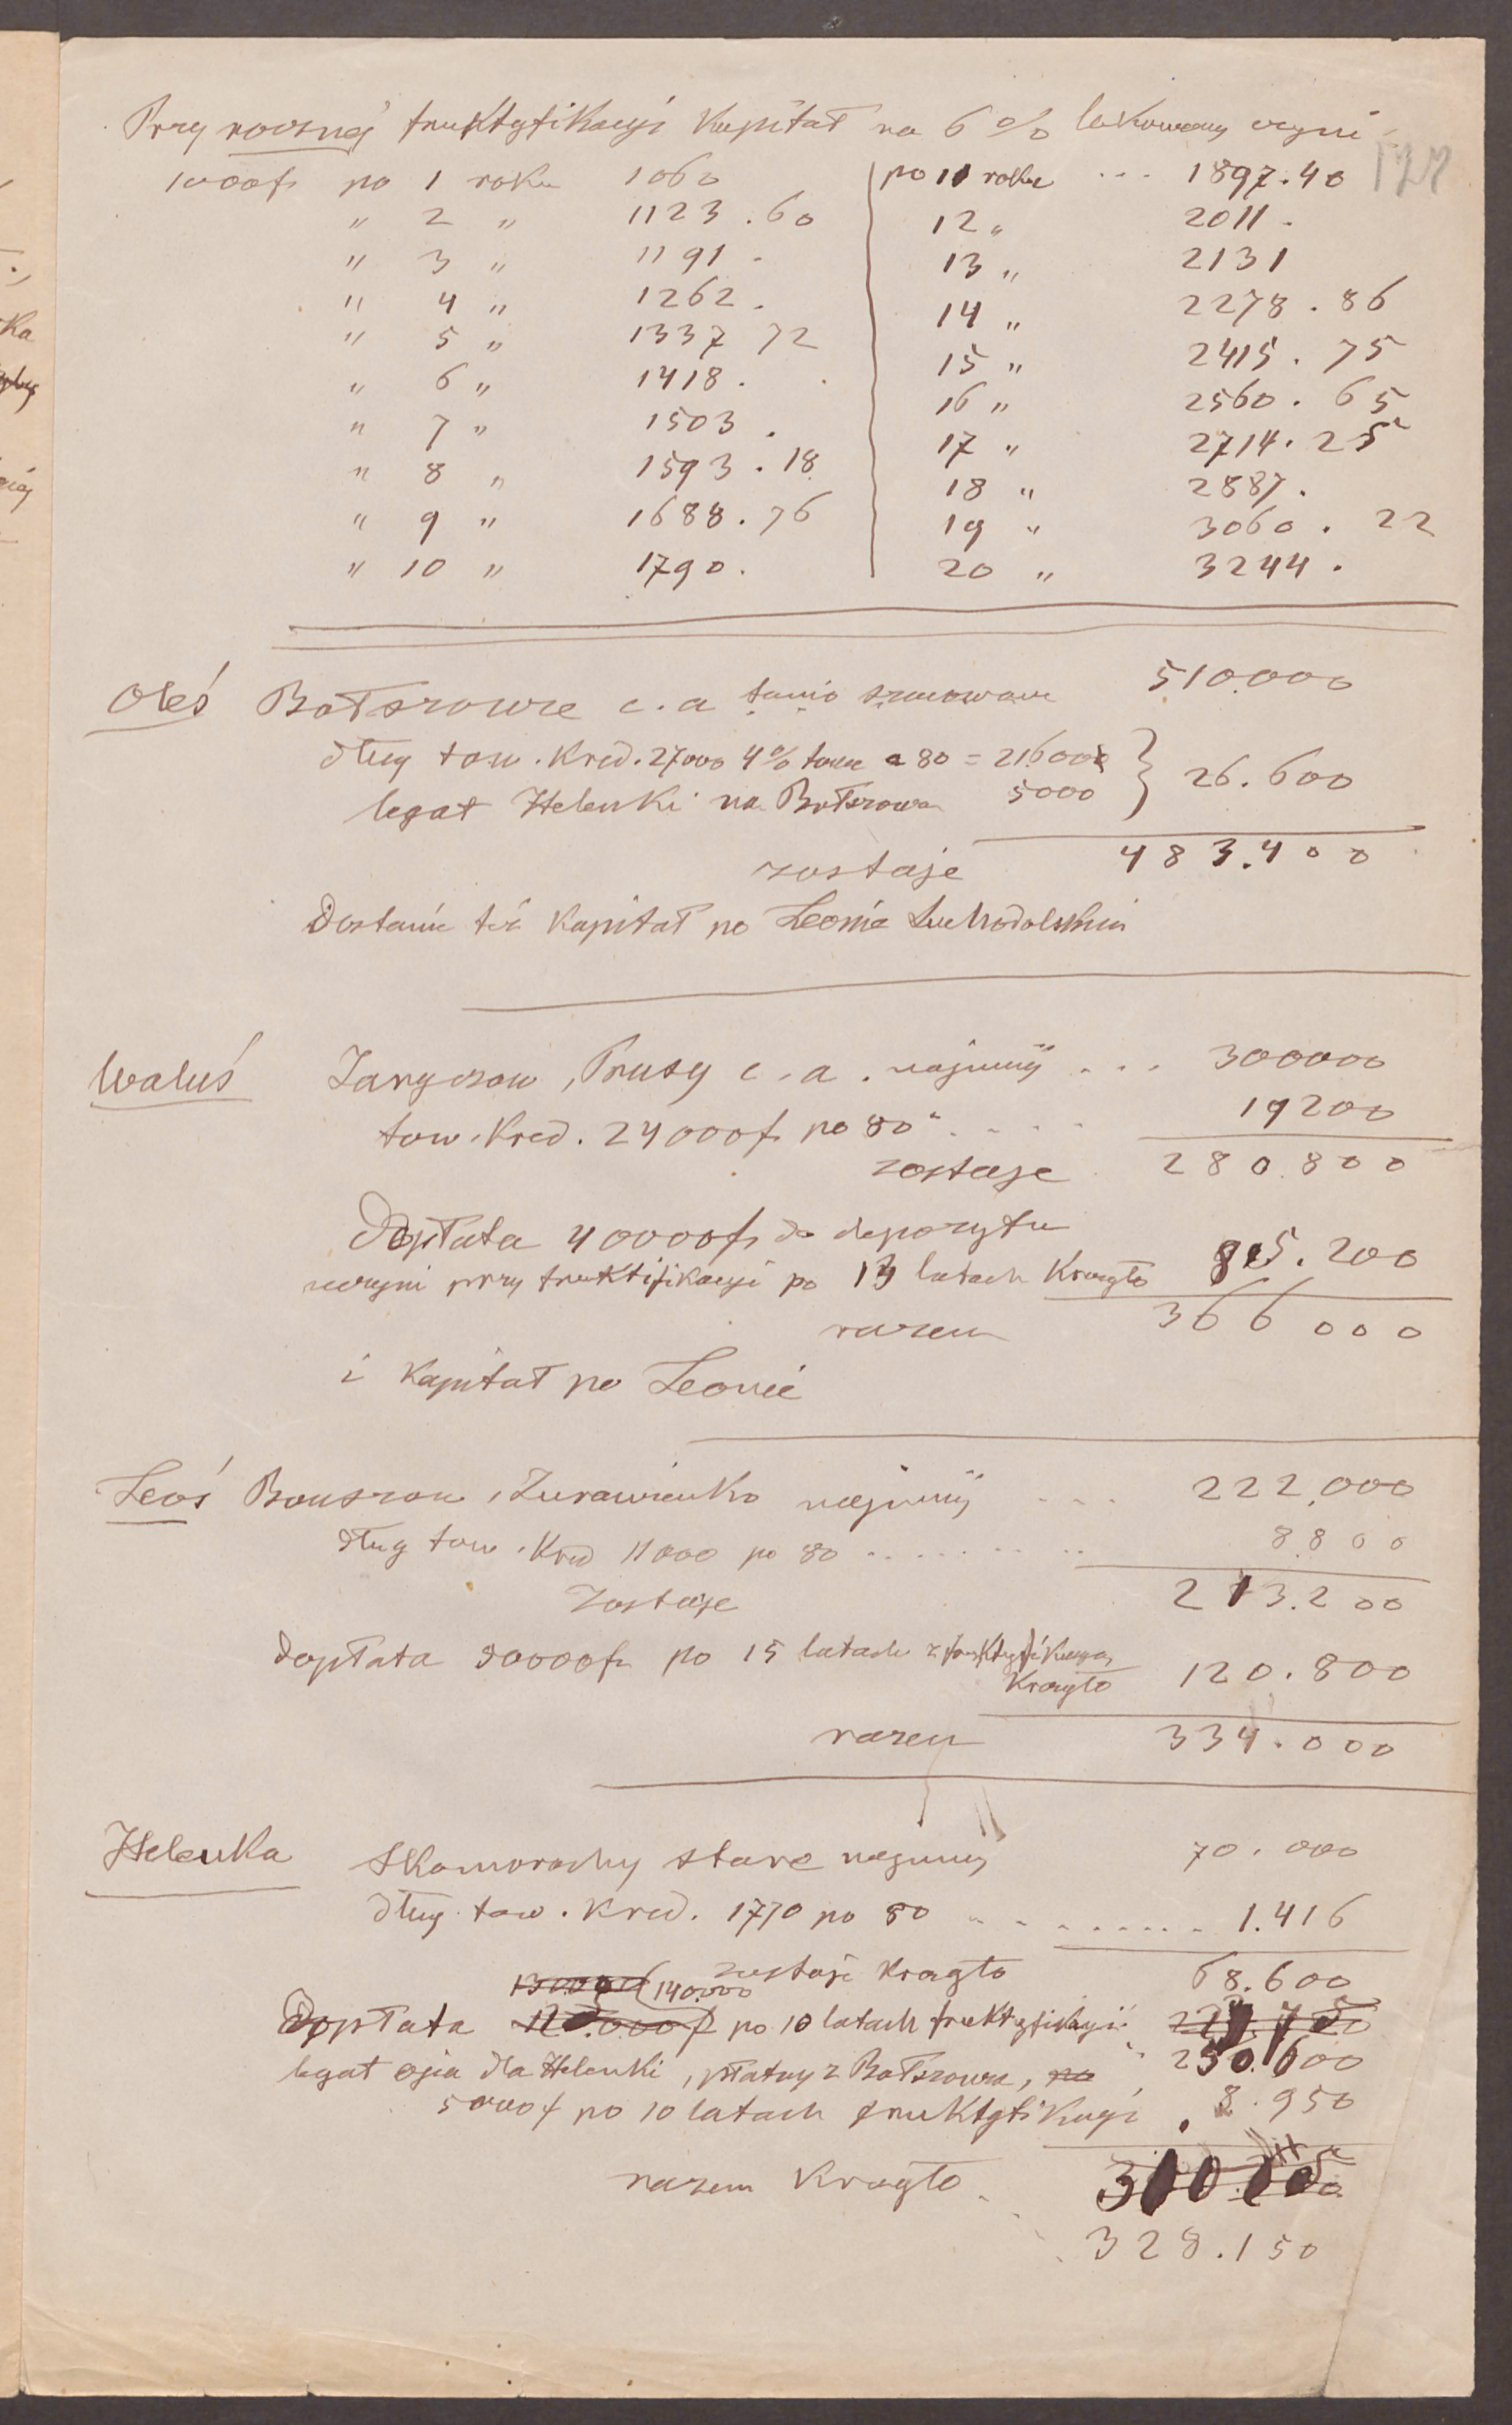 Przy rocznej fruktyfikacyi kapitał na 6% lokowany czyni
1000 f po 1 roku 1060
" 2 " 1123.60
" 3 " 1191.
" 4 " 1262.
" 5 " 1337 72
" 6 " 1418.
" 7 " 1503.
" 8 " 1593.18
" 9 " 1688.76
" 10 " 1790.
po 11 roku ... 1897.40
12 " 2011.
13 " 2131
14 " 2278.86
15 " 2415.75
16 " 2560.65
17 " 2714.25
18 " 2887.
19 " 3060.22
20 " 3244.
Oleś Bołszowce c.a tanio szacowane 510.000
dług tow. Kred. 27000 4% towe a 80 = 21600
legat Helenki na Bołszowcu 5000 } 26.600
zostaje 483.400
Dostanie też kapitał po Leonie Suchodolskim
Waluś Jaryczow, Prusy c.a. najmniej ... 300000
tow. Kred. 24000 f po 80 .... 19200
zostaje 280.800
Dopłata 40000 f do depozytu
uczyni przy fruktifikacyi po 13 latach Krągło 85.200
razem 366000
i kapitał po Leonie
Leoś Bouszow, Zurawienko najmniej ... 222.000
dług tow. Kred 11000 po 80 ........ 8.800
zostaje 213.200
dopłata 50000 f po 15 latach z fruktyfikacyą
Krągło 120.800
razem 334.000
Helenka Skomorochy stare najmniej 70.000
dług tow. Kred. 1770 po 80 ......... 1.416
zostaje krągło 68.600
140.000
Dopłata po 10 latach fruktyfikacyi 250.600
legat ojca dla Helenki, płatny z Bołszowca, na
5000 f po 10 latach fruktyfikacyi 8.950
razem Krągło
328.150